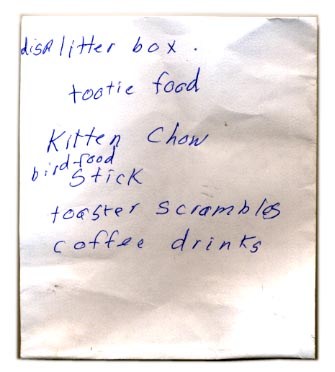 disp litter box.
tootie food
Kitten Chow
bird food
Stick
toaster scrambles
coffee drinks